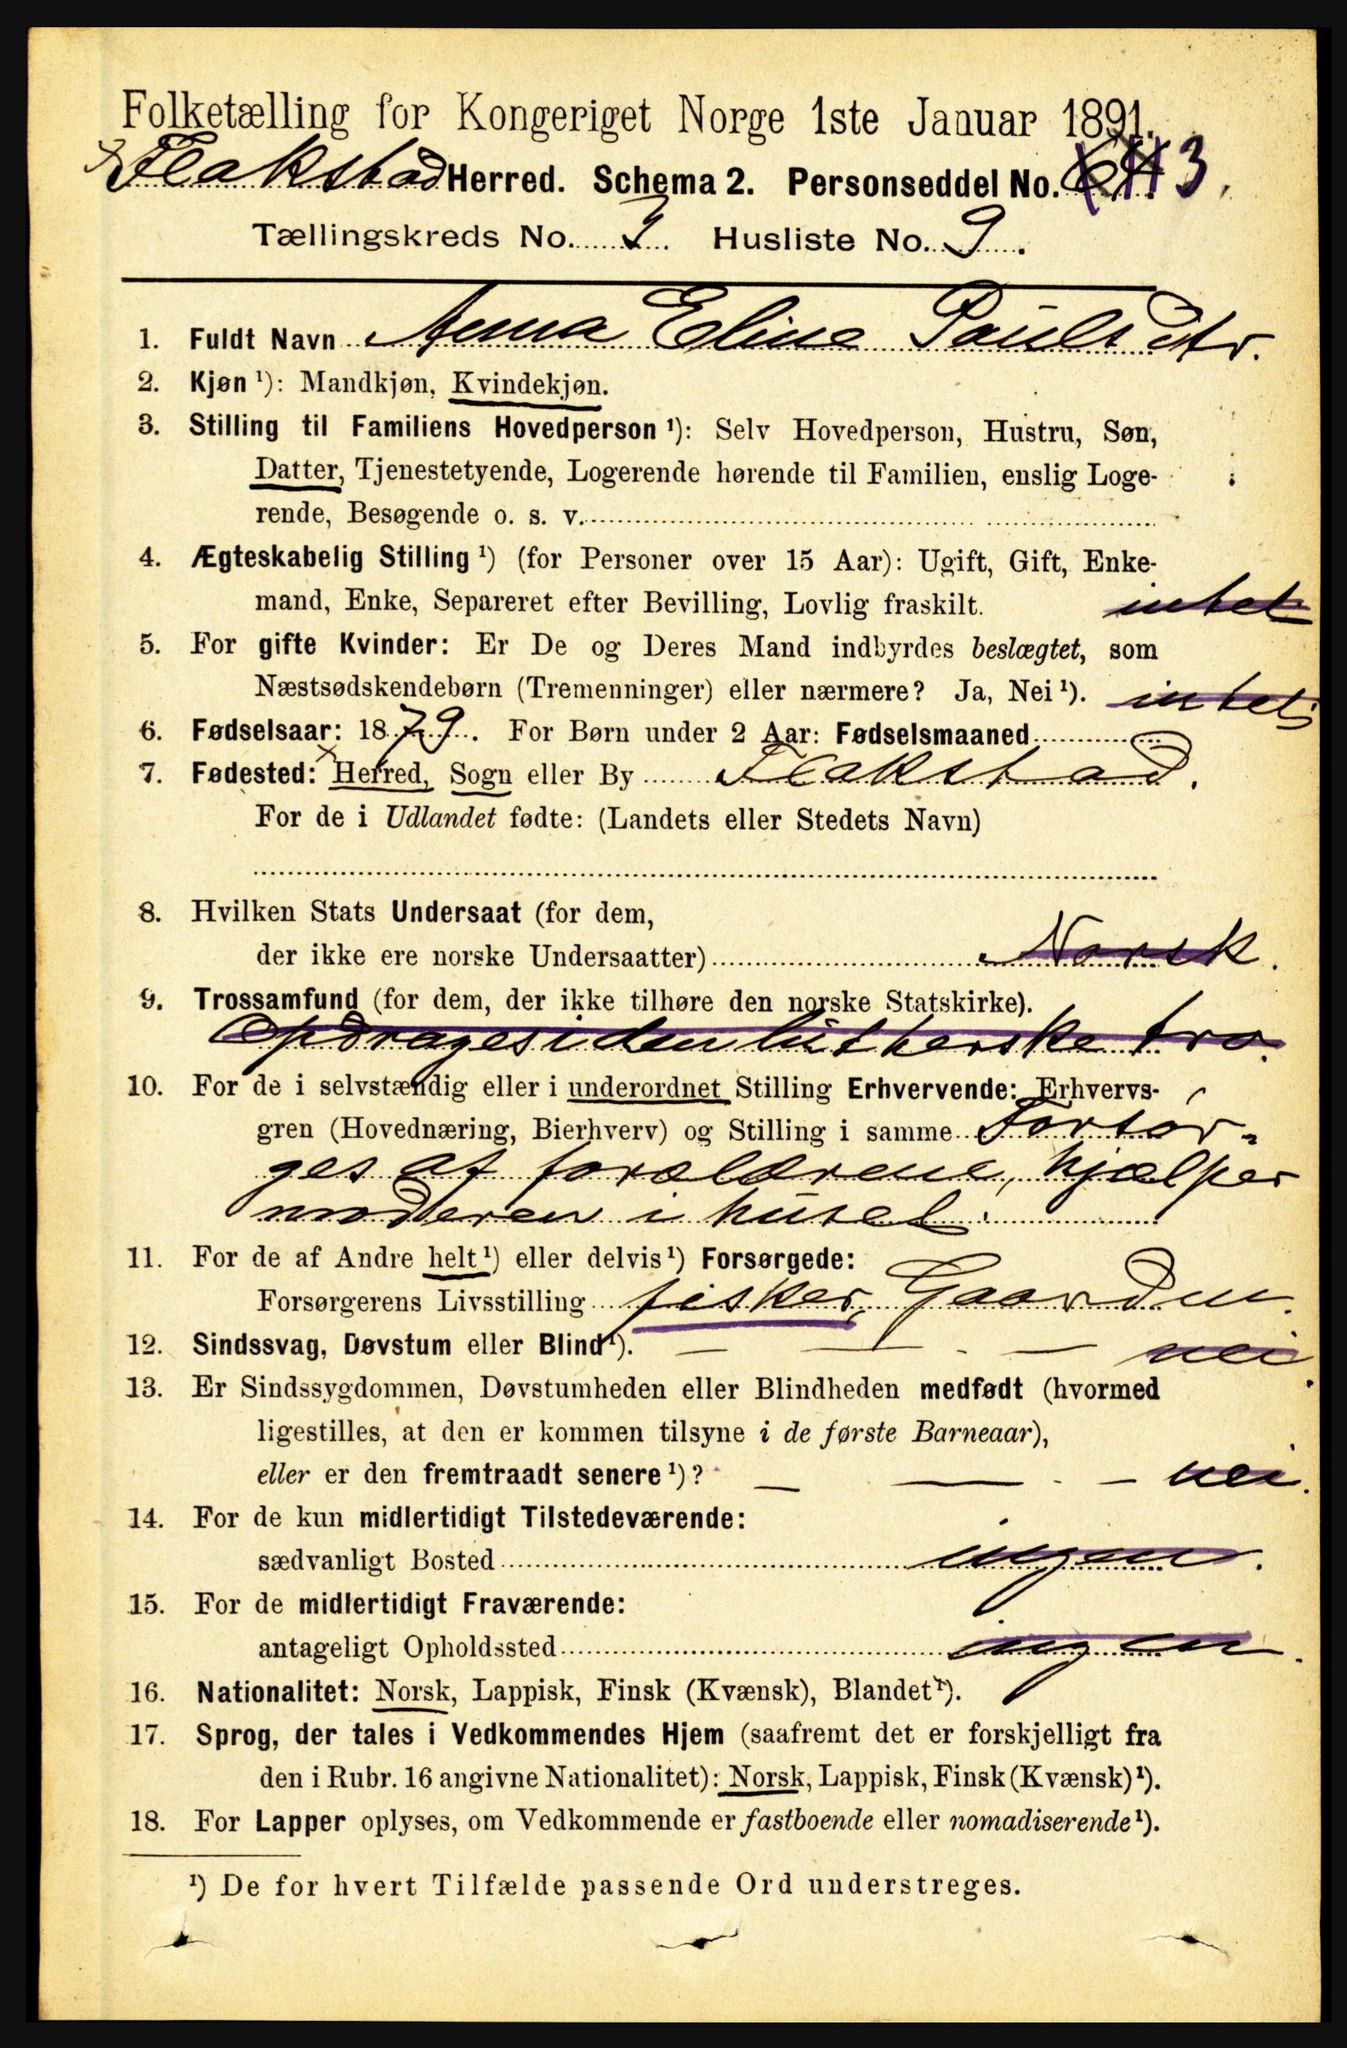 Folketælling for Kongeriget Norge 1ste Januar 1891.
Flakstad Herred. Schema 2. Personseddel No. 3.
Tællingskreds No. 3 Husliste No. 9.
1. Fuldt Navn Anna Eline Pauls Dtr.
2. Kjøn ¹): Mandkjøn, Kvindekjøn.
3. Stilling til Familiens Hovedperson ¹): Selv Hovedperson, Hustru, Søn,
Datter, Tjenestetyende, Logerende hørende til Familien, enslig Loge-
rende, Besøgende o. s. v.
4. Ægteskabelig Stilling ¹) (for Personer over 15 Aar): Ugift, Gift, Enke-
mand, Enke, Separeret efter Bevilling, Lovlig fraskilt. intet
5. For gifte Kvinder: Er De og Deres Mand indbyrdes beslægtet, som
Næstsødskendebørn (Tremenninger) eller nærmere? Ja, Nei ¹). intet
6. Fødselsaar: 1879. For Børn under 2 Aar: Fødselsmaaned
7. Fødested: Herred, Sogn eller By Flakstad.
For de i Udlandet fødte: (Landets eller Stedets Navn)
8. Hvilken Stats Undersaat (for dem,
der ikke ere norske Undersaatter) Norsk.
9. Trossamfund (for dem, der ikke tilhøre den norske Statskirke).
opdrages i den lutherske tro.
10. For de i selvstændig eller i underordnet Stilling Erhvervende: Erhvervs-
gren (Hovednæring, Bierhverv) og Stilling i samme Forsør-
ges af forældrene, hjælper
moderen i huset.
11. For de af Andre helt ¹) eller delvis ¹) Forsørgede:
Forsørgerens Livsstilling fisker, Gaardm.
12. Sindssvag, Døvstum eller Blind ¹). — — . — nei.
13. Er Sindssygdommen, Døvstumheden eller Blindheden medfødt (hvormed
ligestilles, at den er kommen tilsyne i de første Barneaar),
eller er den fremtraadt senere ¹)? — — . — nei.
14. For de kun midlertidigt Tilstedeværende:
sædvanligt Bosted ingen.
15. For de midlertidigt Fraværende:
antageligt Opholdssted ingen.
16. Nationalitet: Norsk, Lappisk, Finsk (Kvænsk), Blandet ¹).
17. Sprog, der tales i Vedkommendes Hjem (saafremt det er forskjelligt fra
den i Rubr. 16 angivne Nationalitet): Norsk, Lappisk, Finsk (Kvænsk) ¹).
18. For Lapper oplyses, om Vedkommende er fastboende eller nomadiserende ¹).
¹) De for hvert Tilfælde passende Ord understreges.